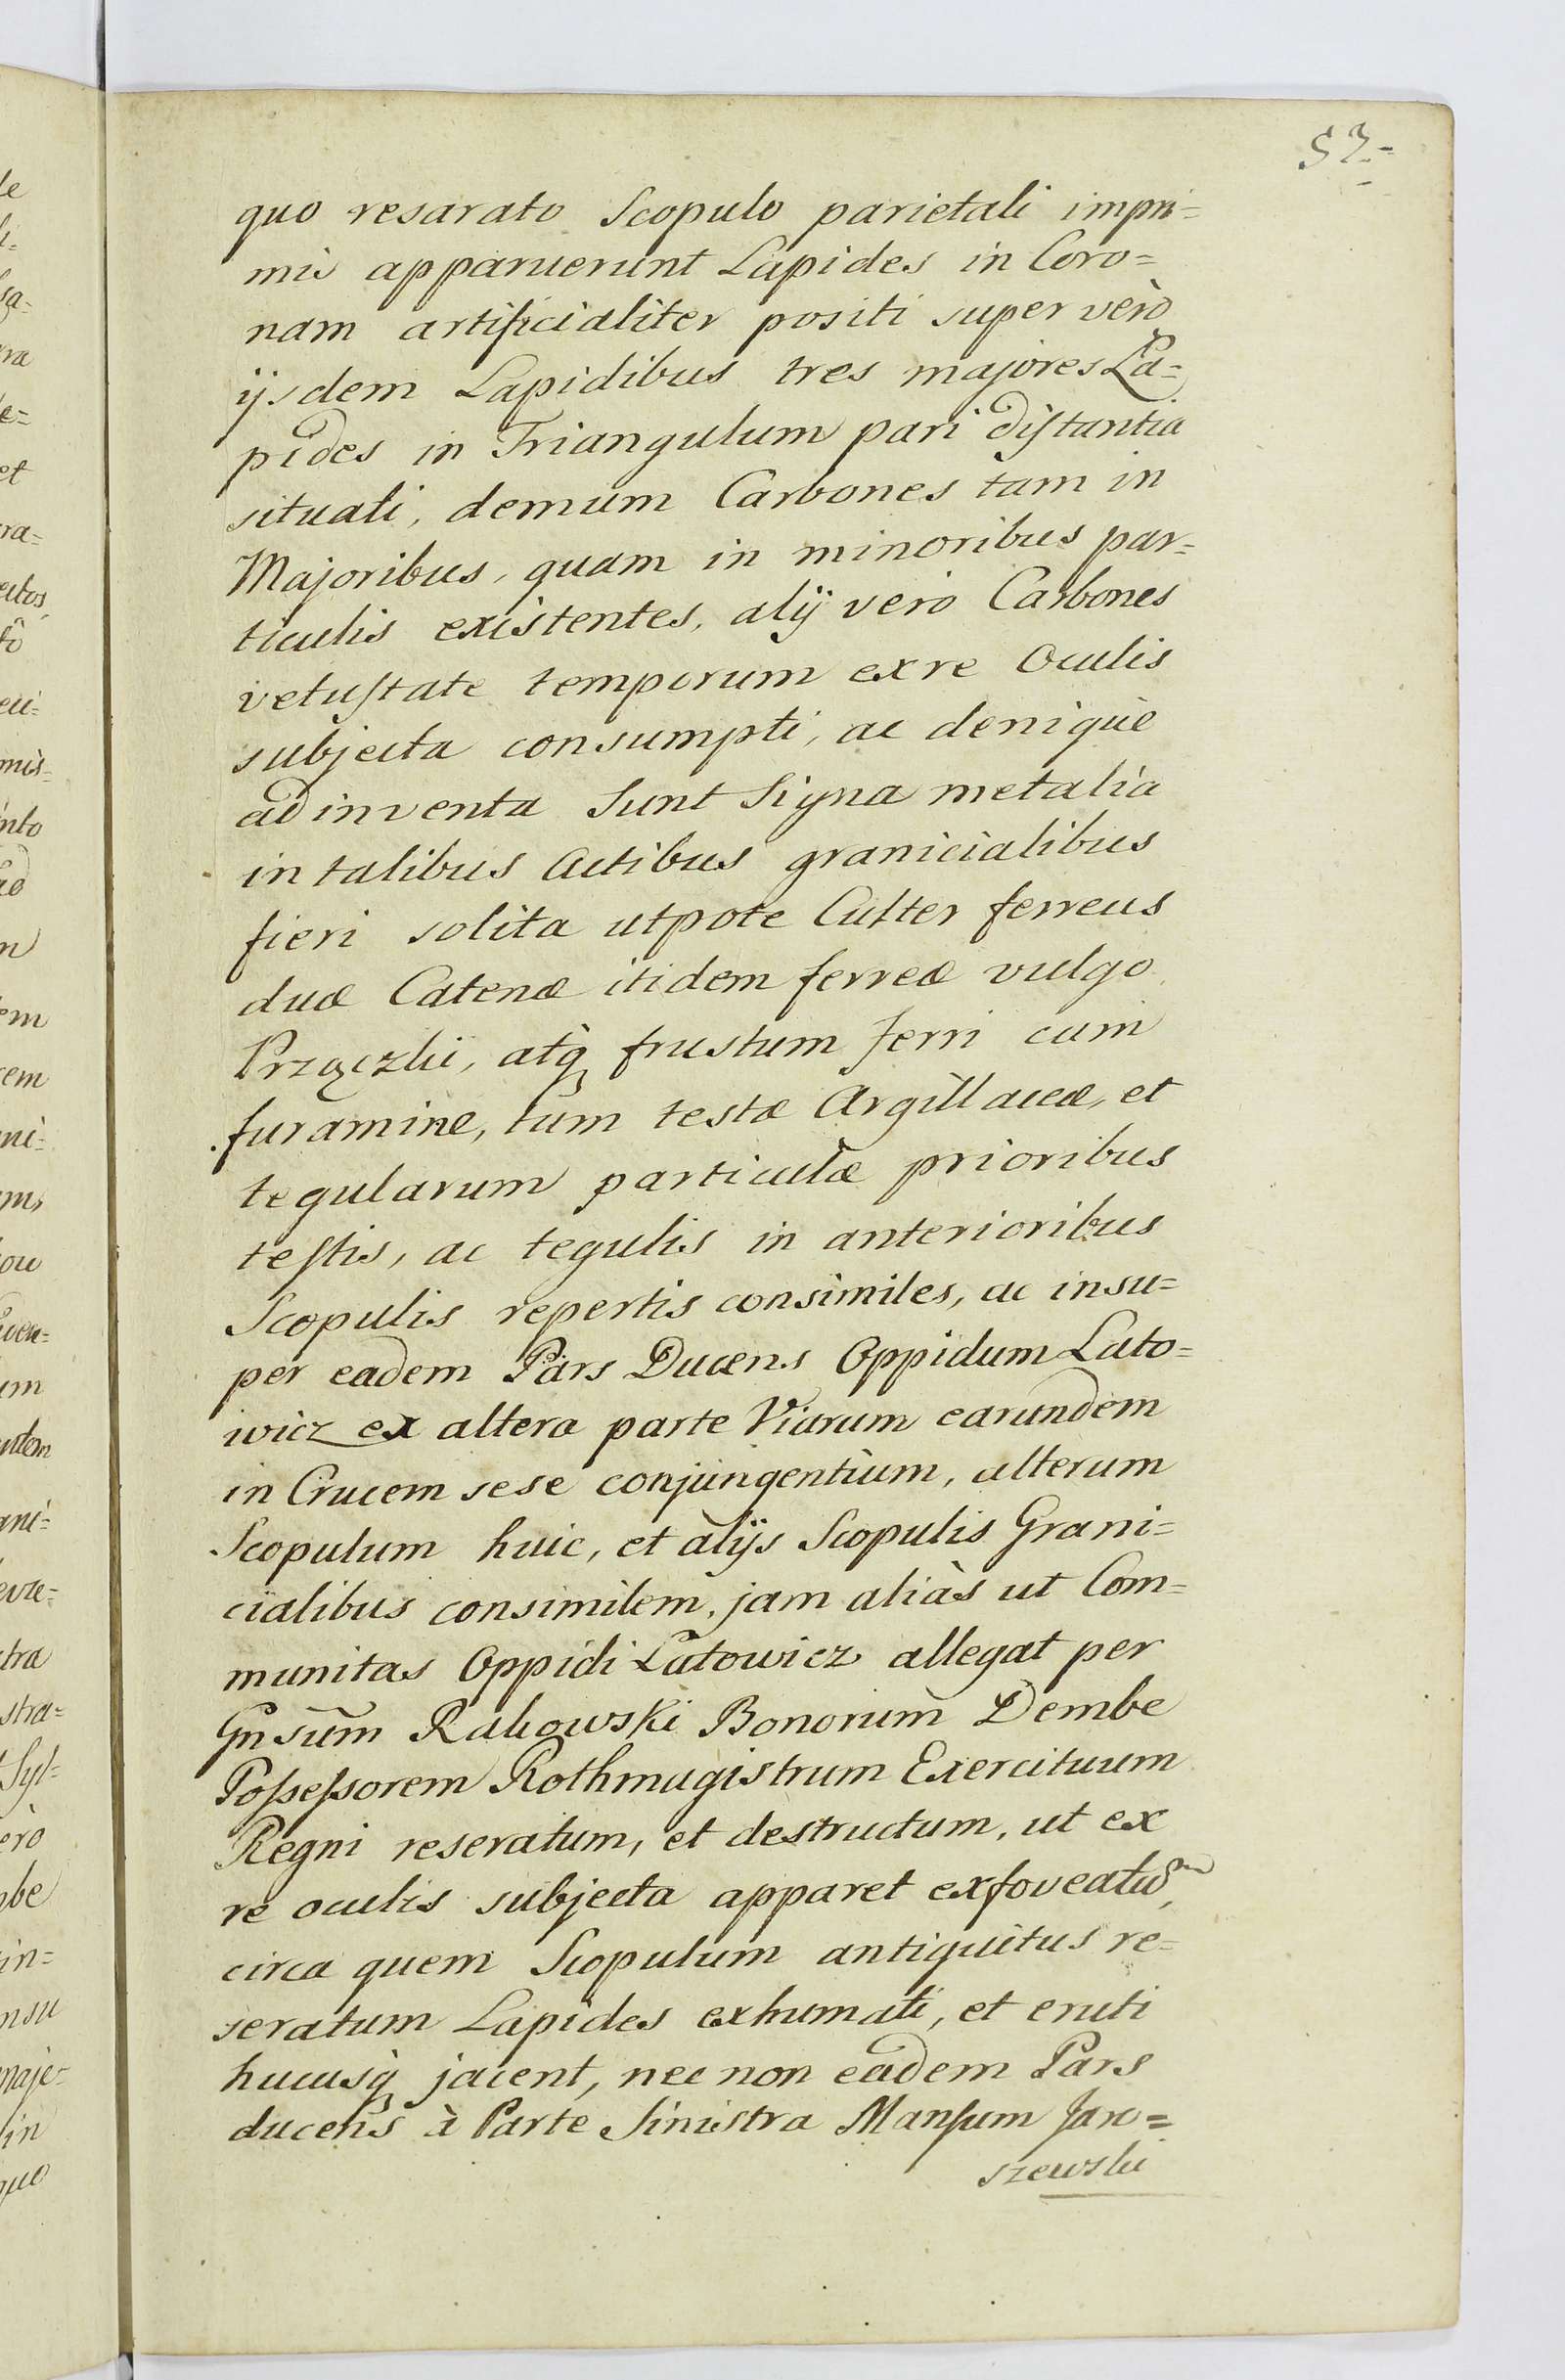 53.=
quo resarato Scopulo parietali impri=
mis apparuerunt Lapides in Coro=
nam artificialiter positi super verò
ijsdem Lapidibus tres majores La=
pides in Triangulum pari distantia
situati, demum Carbones tam in
Majoribus, quam in minoribus par=
ticulis existentes, alij vero Carbones
vetustate temporum ex re Oculis
subjecta consumpti, ac denique
adinventa Sunt Signa metalia
in talibus Actibus granicialibus
fieri solita utpote Culter ferreus
duæ Catenæ itidem ferreæ vulgo
Przączki, atq frustum ferri cum
furamine, tum testæ Argillaceæ, et
tegularum particulæ prioribus
testis, ac tegulis in anterioribus
Scopulis repertis consimiles, ac insu=
per eadem Pars Ducens Oppidum Lato=
wicz ex altera parte Viarum earundem
in Crucem sese conjungentium, alterum
Scopulum huic, et alijs Scopulis Grani=
cialibus consimilem, jam aliàs ut Com=
munitas Oppidi Latowicz allegat per
Gnsum Rakowski Bonorum Dembe
Possessorem Rothmagistrum Exercituum
Regni reseratum, et destructum, ut ex
re oculis subjecta apparet exfoveatũ,
circa quem Scopulum antiquitus re=
seratum Lapides exhumati, et eruti
hucusq jacent, nec non eadem Pars
ducens à Parte Sinistra Mansum Jaro=
szewski